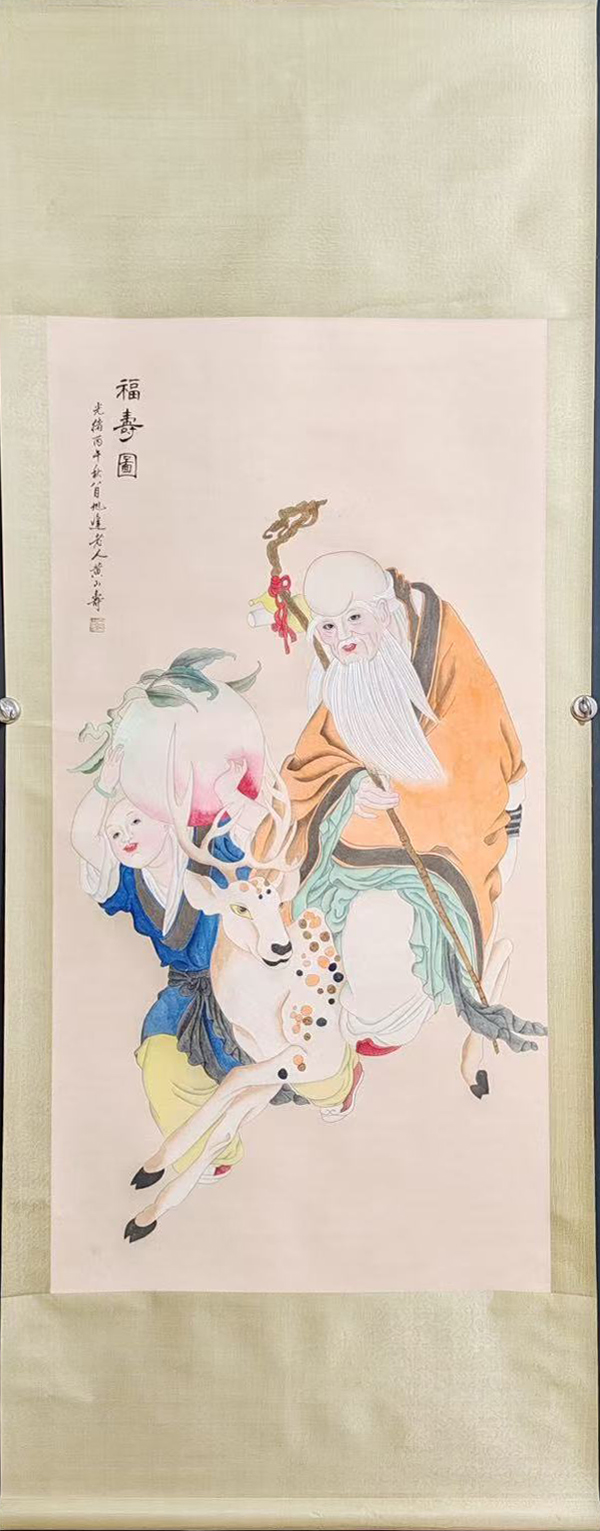 福壽圖
光緒丙午秋八月旭遲老人黃山壽